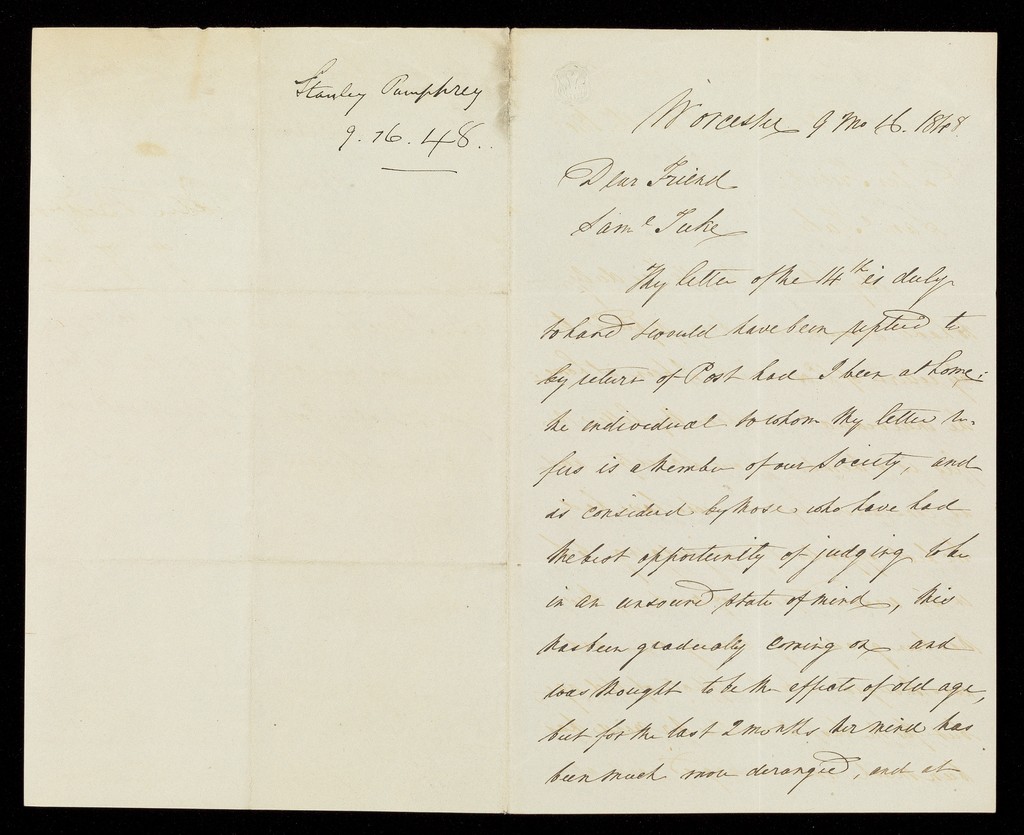 Stanley Pumphrey
9. 16. 48..
Worcester 9 Mo 16. 1848
Dear Friend
Saml Tuke
Thy letter of the 14th is duly
to hand & would have been replied to
by return of Post had I been at home;
the individual to whom thy letter re-
fers is a Member of our Society, and
is considered by those who have had
the best opportunity of judging to be
in an unsound state of mind, this
has been gradually coming on and
was thought to be the effects of old age,
but for the last 2 months her mind has
been much more deranged, and at